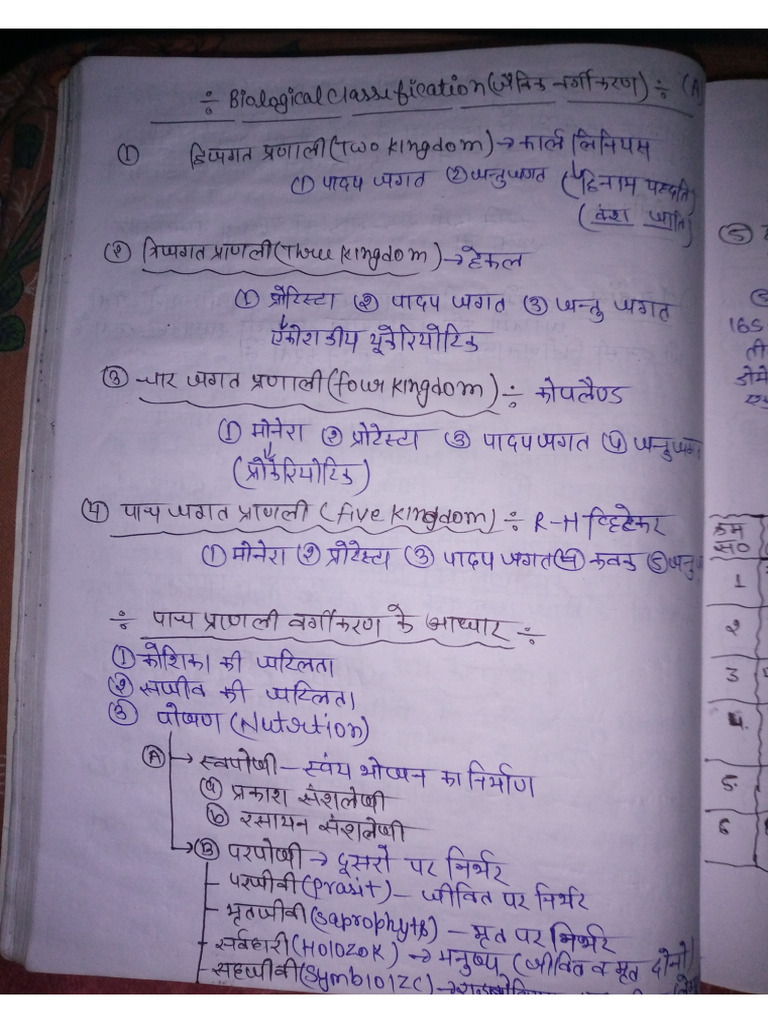 ÷ Biological Classification (जैविक वर्गीकरण) ÷ (A)
① द्विजगत प्रणाली (Two kingdom) → कार्ल लिनियस
① पादप जगत ② जन्तुजगत (द्विनाम पद्धति)
(वंश जाति)
② त्रिजगत प्राणली (Three kingdom) → हेकल
① प्रोटिस्टा ② पादप जगत ③ जन्तु जगत
एकोशकीय यूकेरियोटिक
③ चार जगत प्रणाली (four kingdom) ÷ कोपलैण्ड
① मोनेरा ② प्रोटेस्टा ③ पादपजगत ④ जन्तुजगत
(प्रोकेरियोटिक)
④ पाच जगत प्राणली (five kingdom) ÷ R-H व्हिटेकर
① मोनेरा ② प्रोटेस्टा ③ पादप जगत ④ कवक ⑤ जन्तु
÷ पाच प्रणाली वर्गीकरण के आधार ÷
① कोशिका की जटिलता
② सजीव की जटिलता
③ पोषण (Nutrtion)
(A) → स्वपोषी – स्वंय भोजन का निर्माण
(a) प्रकाश संशलेषी
(b) रसायन संशलेषी
→ (B) परपोषी → दूसरो पर निर्भर
– परजीवी (prasit) – जीवित पर निर्भर
– मृतजीवी (saprophyts) – मृत पर निर्भर
– सर्वहारी (Holozok) → मनुष्य (जीवित व मृत दोनो)
– सहजीवी (Symbiolzc) →
⑤
165
ती
डोमे
क्रम
स०
1
२
3
4.
5.
6